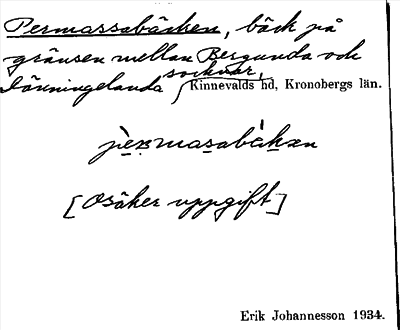 Permassabäcken, bäck på
gränsen mellan Bergunda och
Lönningelanda socknar,
Kinnevalds hd, Kronobergs län.
[Osäker uppgift]
Erik Johannesson 1934.